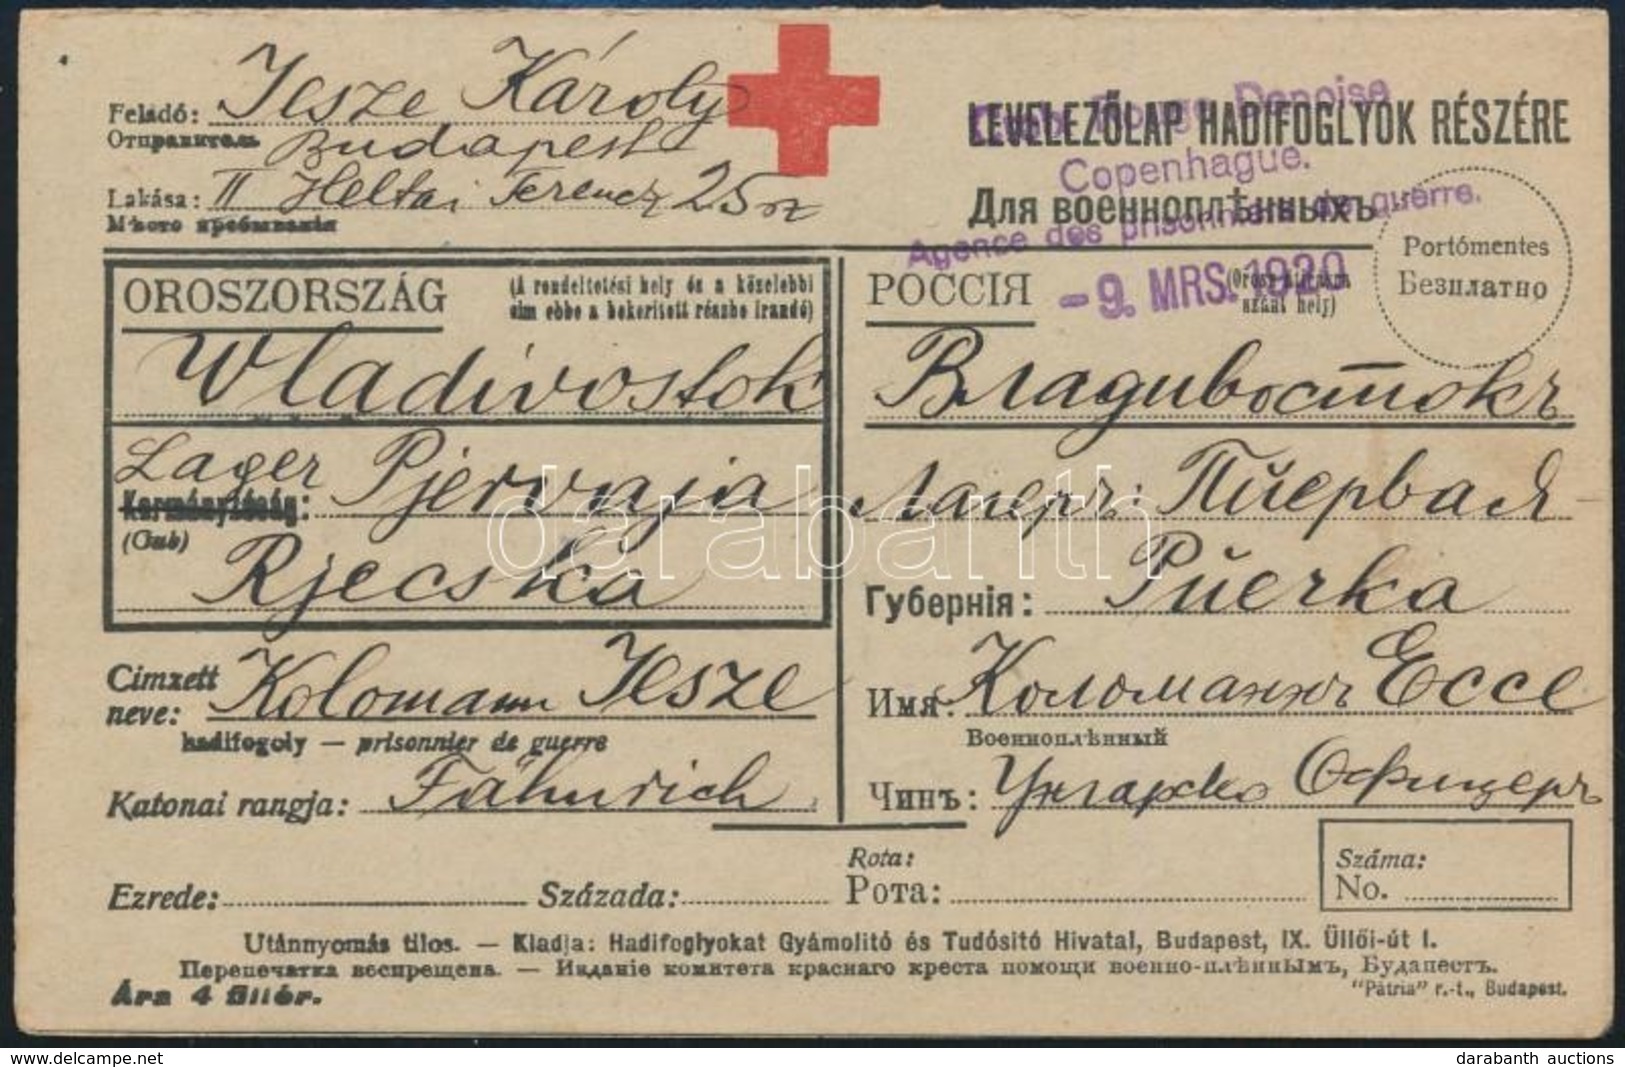 Feladó: Jesze Károly
Отправитель Budapest
Lakása: II Heltai Ferencz 25 sz
Мѣсто пребыванія
LEVELEZŐLAP HADIFOGLYOK RÉSZÉRE
Для военноплѣнныхъ
Croix Rouge Danoise
Copenhague.
Agence des prisonniers de guerre.
- 9. MRS. 1920
Portómentes
Безплатно
OROSZORSZÁG
(A rendeltetési hely és a közelebbi
cim ebbe a bekeritett részbe irandó)
Wladivostok
Lager Pjervaja
Kormányzóság:
(Gub)
Rjecska
РОССІЯ
(Orosz
szánt hely)
Владивостокъ
Лагеръ: Пйервая
Губернія: Рйечка
Cimzett
neve: Kolomann Jesze
hadifogoly — prisonnier de guerre
Katonai rangja: Fähnrich
Имя: Коломаннъ Ессе
Военноплѣнный
Чинъ: Унгарско Офицеръ
Ezrede: Százada:
Rota:
Рота:
Száma:
No.
Utánnyomás tilos. — Kiadja: Hadifoglyokat Gyámolitó és Tudósitó Hivatal, Budapest, IX. Üllői-út 1.
Перепечатка воспрещена. — Изданіе комитета краснаго креста помощи военно-плѣннымъ, Будапестъ.
Ára 4 fillér.
"Pátria" r.-t., Budapest.
darabanth
delcampe.net
darabanth auctions